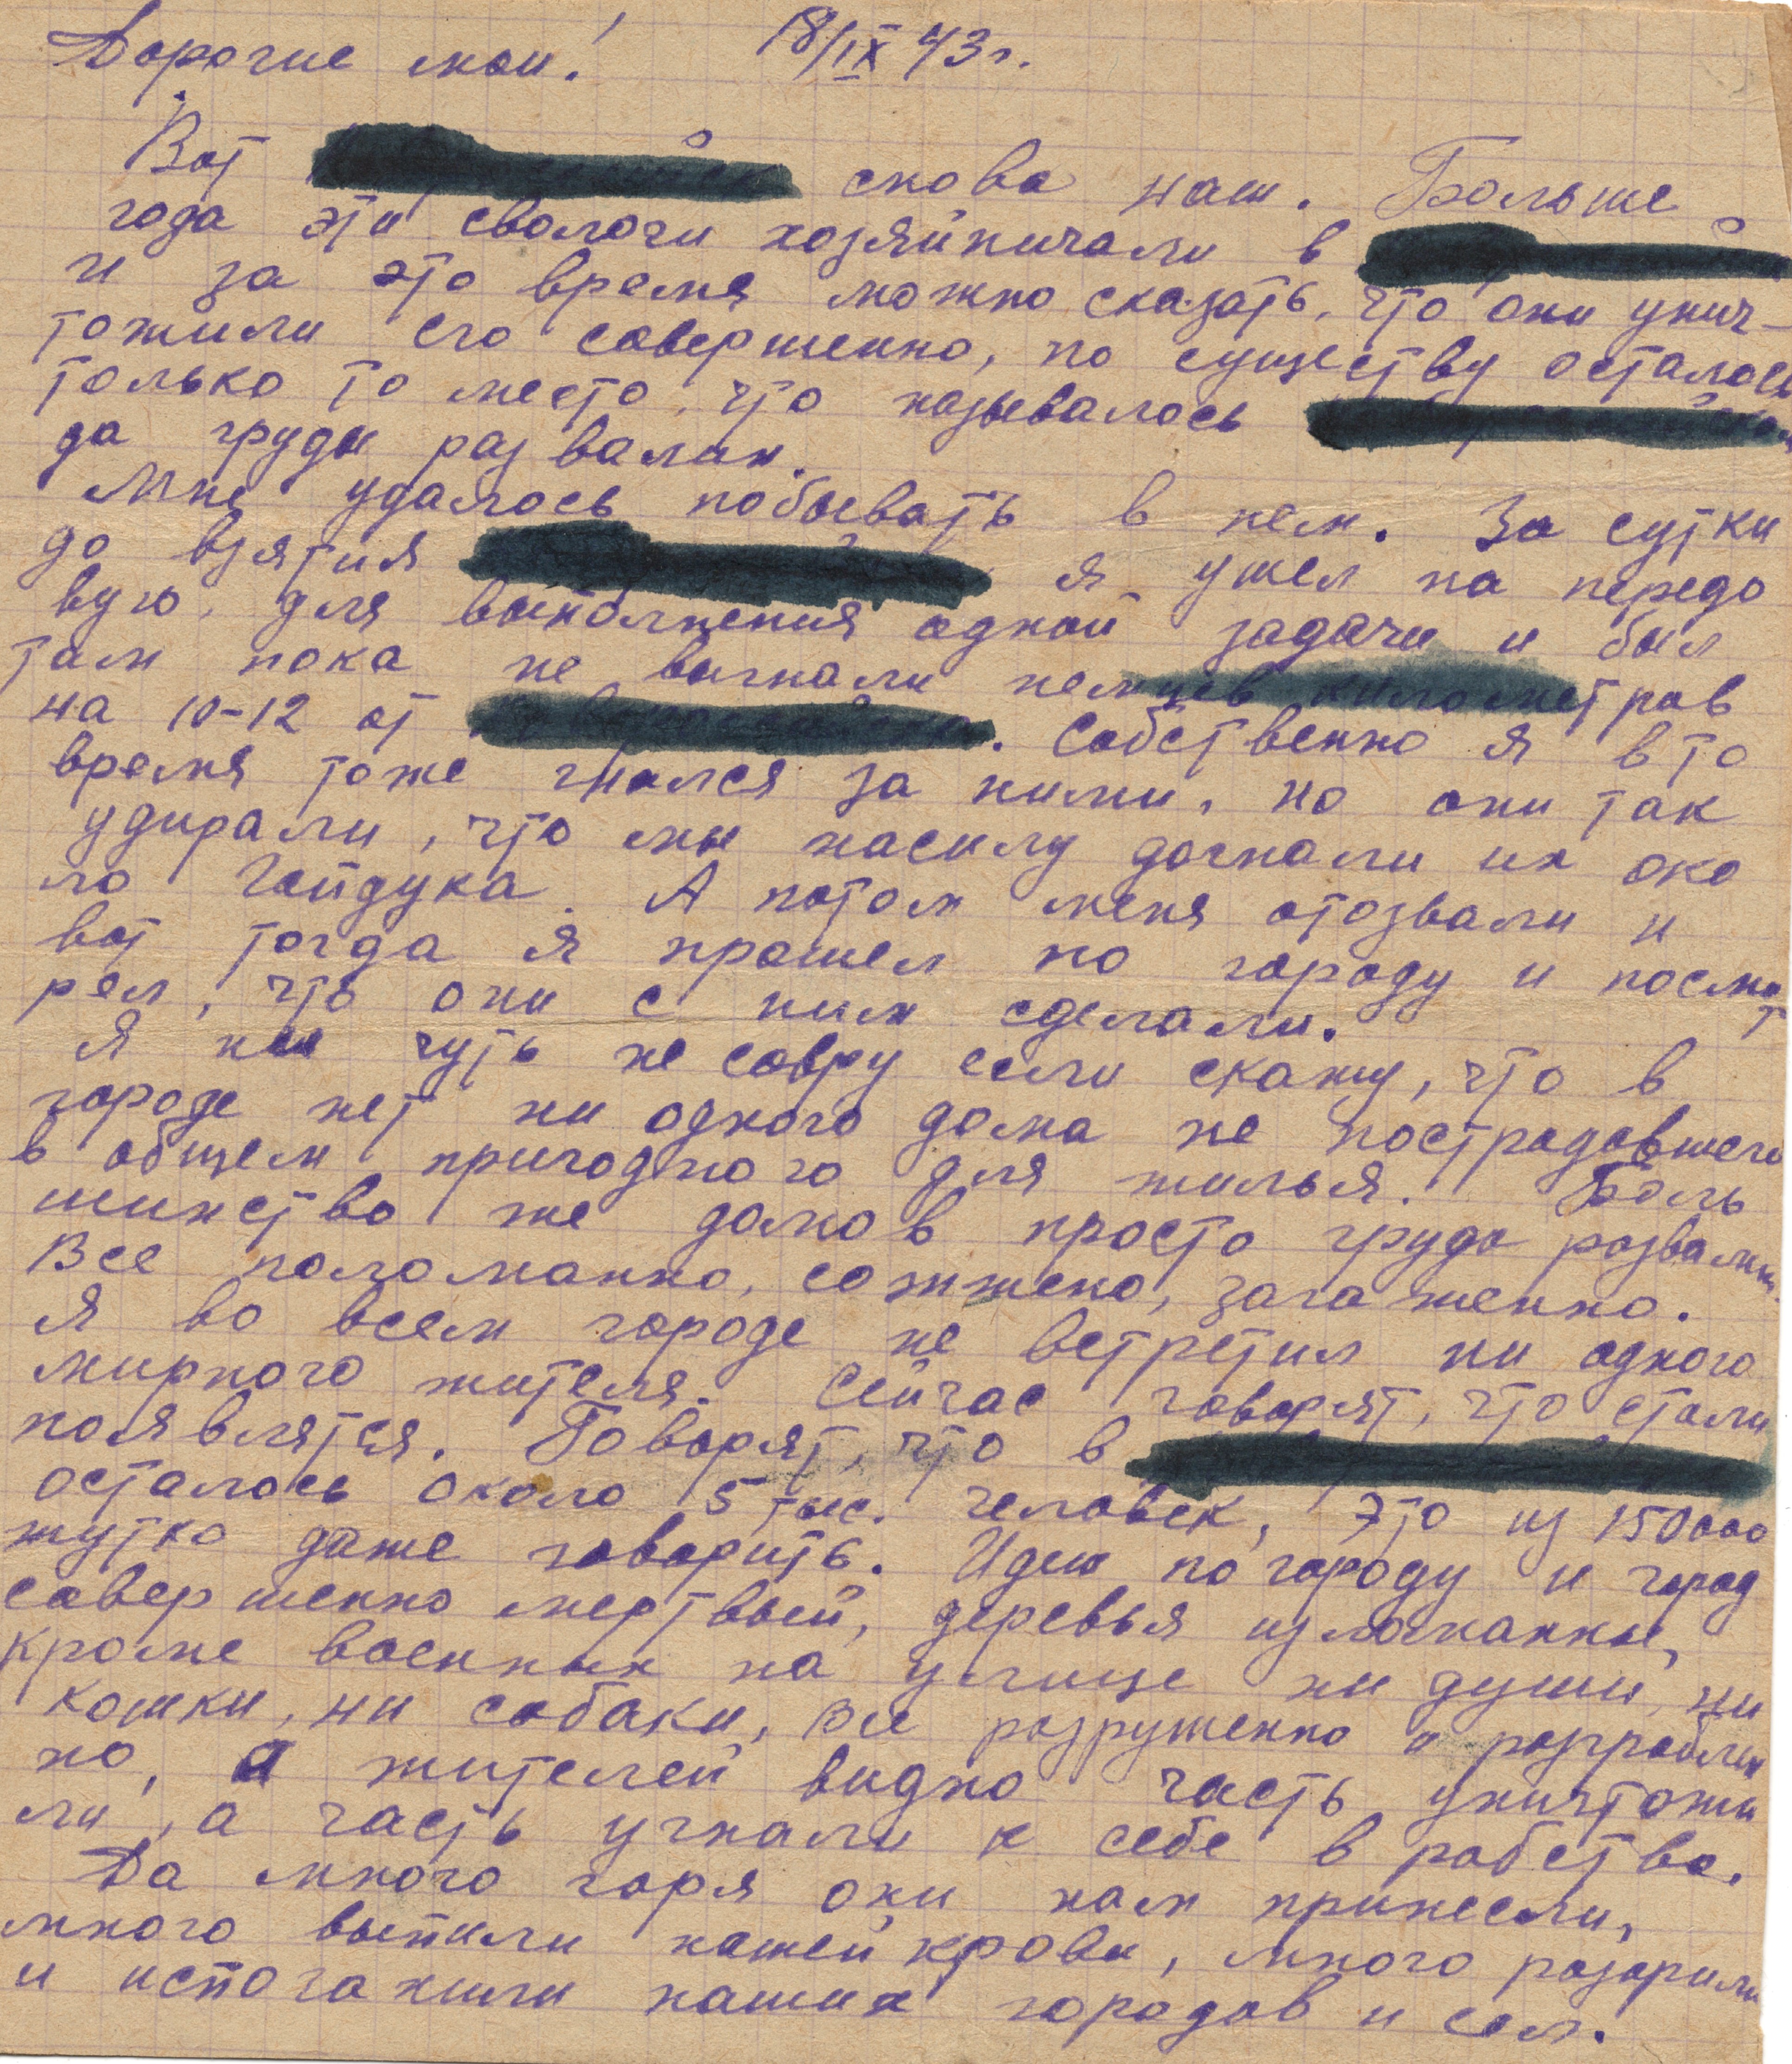 Дорогие мои! 18/IX 43 г.
Вот снова наш. Больше
года эти сволочи хозяйничали в
и за это время можно сказать, что они унич-
тожили его совершенно, по существу осталось
только то место, что называлось
да груды развалин.
Мне удалось побывать в нем. За сутки
до взятия я ушел на передо
вую, для выполнения одной задачи и был
там пока не выгнали немцев километров
на 10-12 от . Собственно я в то
время тоже гнался за ними, но они так
удирали, что мы насилу догнали их око
ло Гайдука. А потом меня отозвали и
вот тогда я прошел по городу и посмот
рел, что они с ним сделали.
Я ни чуть не совру если скажу, что в
городе нет ни одного дома не пострадавшего
в общем пригодного для жилья. Боль
шинство же домов просто груда развалин.
Все поломанно, сожжено, загаженно.
Я во всем городе не встретил ни одного
мирного жителя. Сейчас говорят, что стали
появлятся. Говорят, что в
осталось около 5 тыс. человек, это из 150000
жутко даже говорить. Идеш по городу и город
совершенно мертвый, деревья изломанны,
кроме военных на улице ни души, ни
кошки, ни собаки, все разрушенно и разграблен
но, а жителей видно часть уничтожи
ли, а часть угнали к себе в рабство.
Да много горя они нам принесли,
много выпили нашей крови, много разорили
и испоганили наших городов и сел.